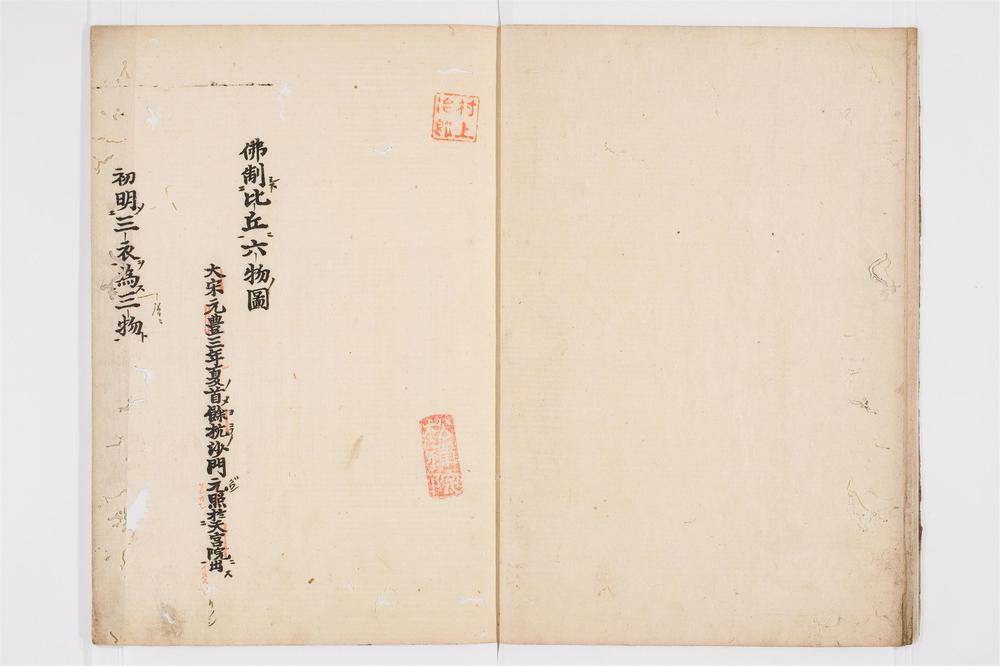 村上
治郎
佛制比丘六物圖
大宋元豐三年夏首餘杭沙門元照於天宮院出
初明三衣為三物